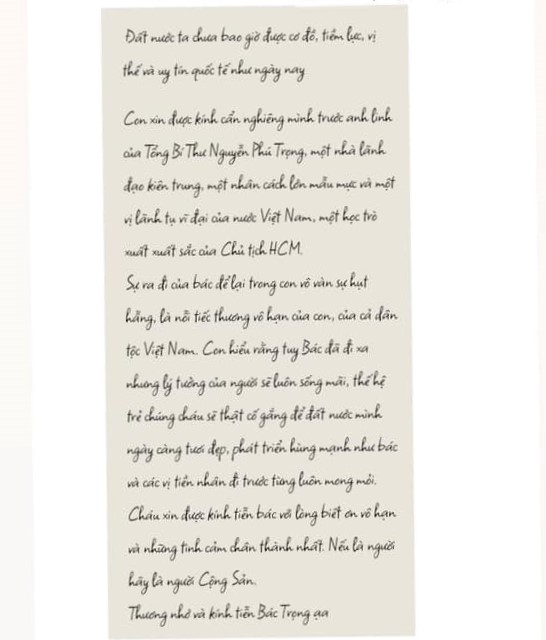 Đất nước ta chưa bao giờ được cơ đồ, tiềm lực, vị
thế và uy tín quốc tế như ngày nay
Con xin được kính cẩn nghiêng mình trước anh linh
của Tổng Bí Thư Nguyễn Phú Trọng, một nhà lãnh
đạo kiên trung, một nhân cách lớn mẫu mực và một
vị lãnh tụ vĩ đại của nước Việt Nam, một học trò
xuất xuất sắc của Chủ tịch HCM.
Sự ra đi của bác để lại trong con vô vàn sự hụt
hẫng, là nỗi tiếc thương vô hạn của con, của cả dân
tộc Việt Nam. Con hiểu rằng tuy Bác đã đi xa
nhưng lý tưởng của người sẽ luôn sống mãi, thế hệ
trẻ chúng cháu sẽ thật cố gắng để đất nước mình
ngày càng tươi đẹp, phát triển hùng mạnh như bác
và các vị tiền nhân đi trước từng luôn mong mỏi.
Cháu xin được kính tiễn bác với lòng biết ơn vô hạn
và những tình cảm chân thành nhất. Nếu là người
hãy là người Cộng Sản.
Thương nhớ và kính tiễn Bác Trọng ạa